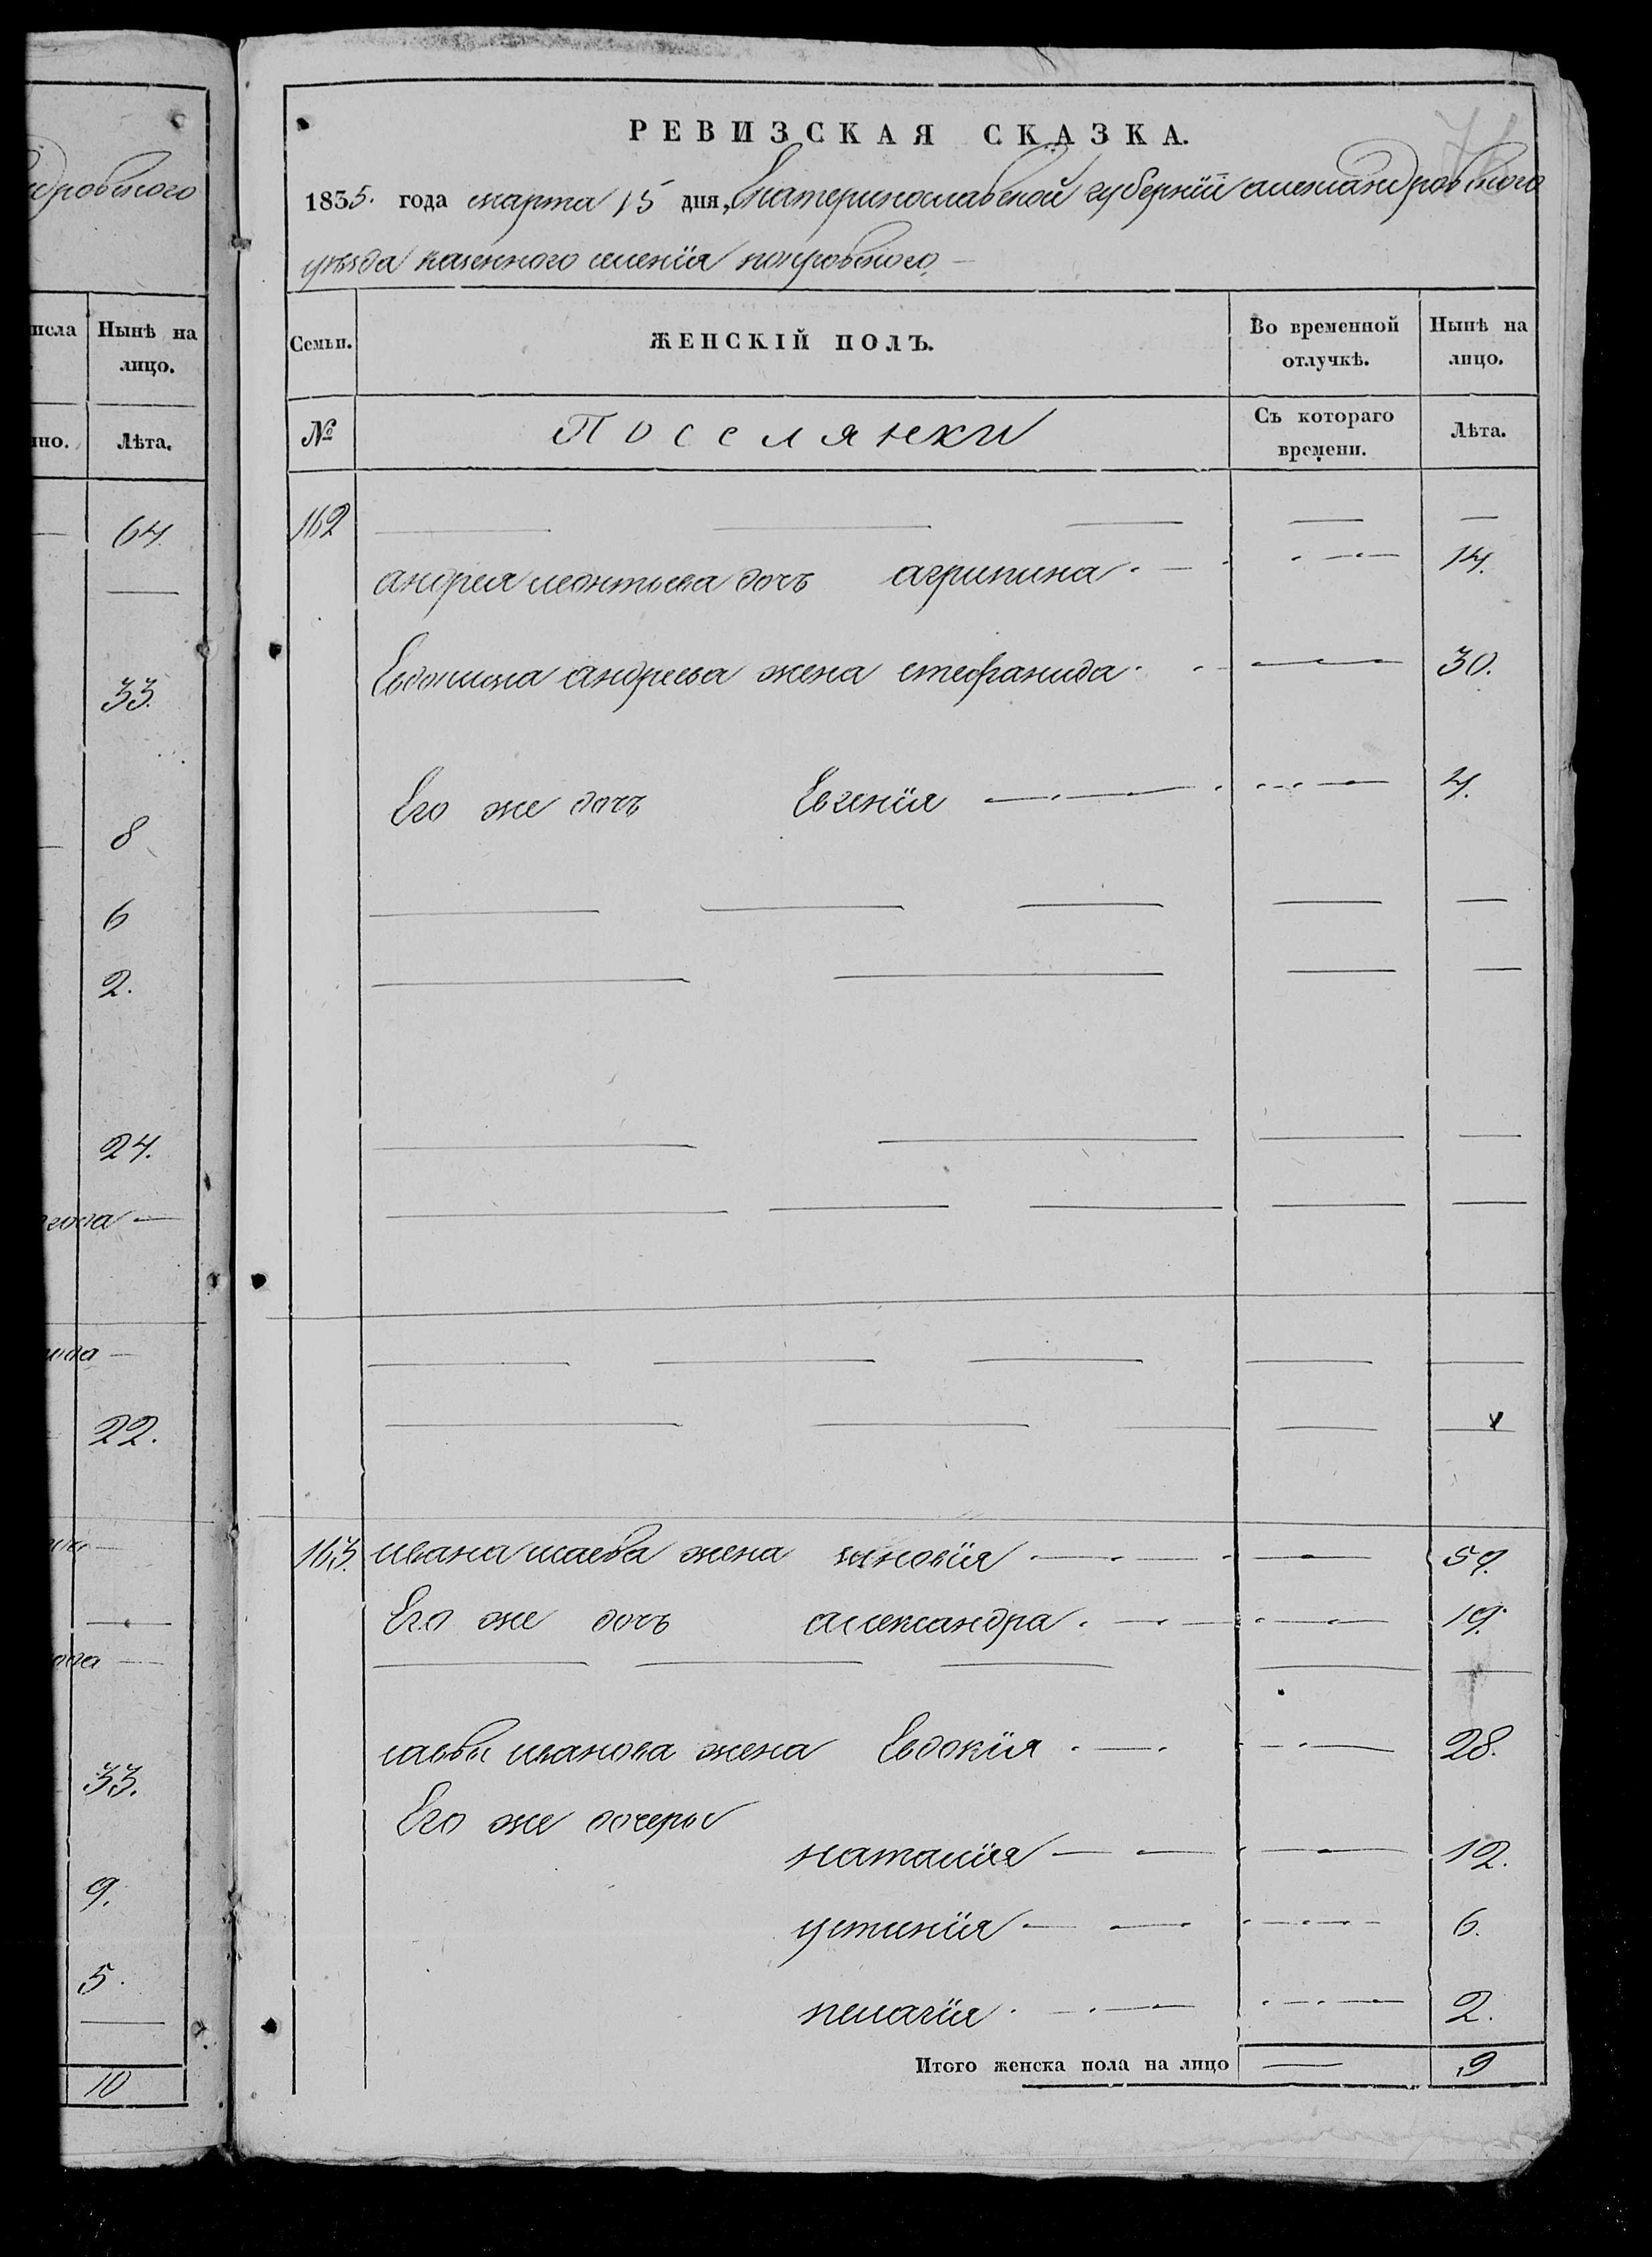 дровского
исла Нынѣ на
лицо.
но. Лѣта.
64.
33.
8
6
2.
24.
года
22.
33.
9.
5.
10
РЕВИЗСКАЯ СКАЗКА.
1835. года марта 15 дня, Екатеринославской губернїи александровского
уезда казенного селенїя покровского
Семьи. ЖЕНСКІЙ ПОЛЪ. Во временной Нынѣ на
отлучкѣ. лицо.
№ Поселянки Съ котораго Лѣта.
времени.
162
андрея леонтьева дочъ агрипина 14.
Евдокима андреева жена стефанида 30.
Его же дочъ Евгенїя 4.
163. ивана исаева жена зиновїя 59.
Его же дочъ александра 19.
саввы иванова жена Евдокїя 28.
Его же дочеры
наталїя 12.
устинїя 6.
пелагїя 2.
Итого женска пола на лицо 9